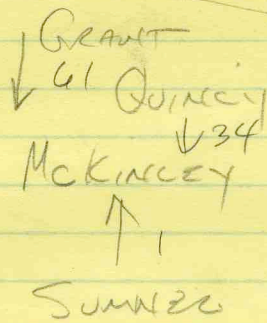 GRANT
61 QUINCY
34
MCKINLEY
1
SUMNER